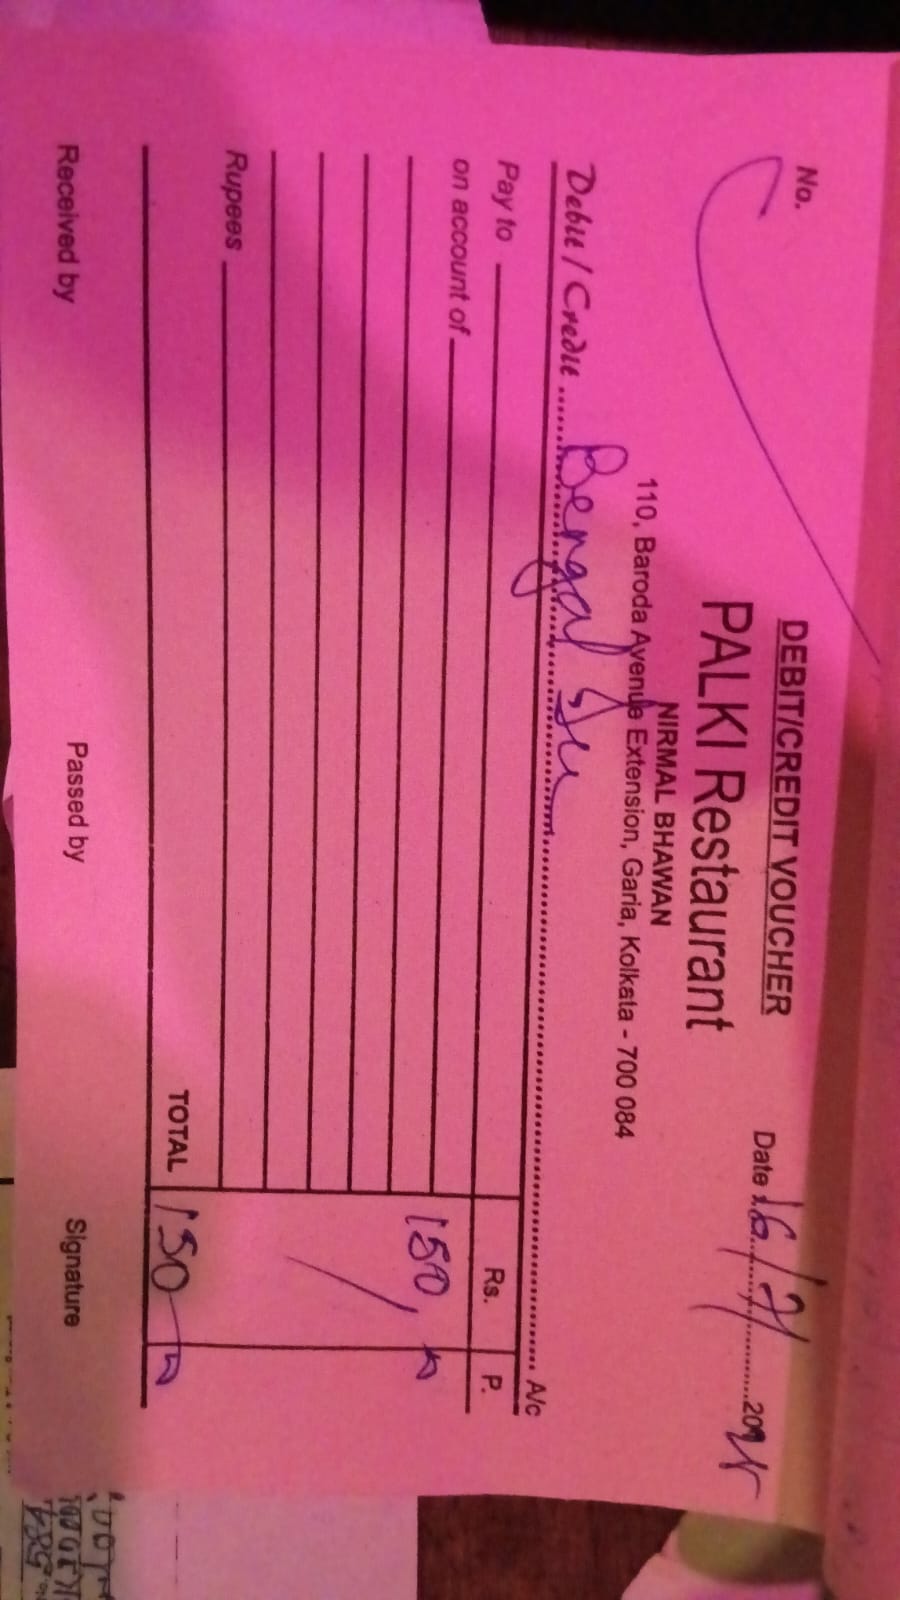 No.
DEBIT/CREDIT VOUCHER
PALKI Restaurant
NIRMAL BHAWAN
110, Baroda Avenue Extension, Garia, Kolkata - 700 084
Date 16/7/
Debit / Credit Bengal A/c
Pay to Rs. P.
on account of
150
Rupees
TOTAL 150
Received by Passed by Signature